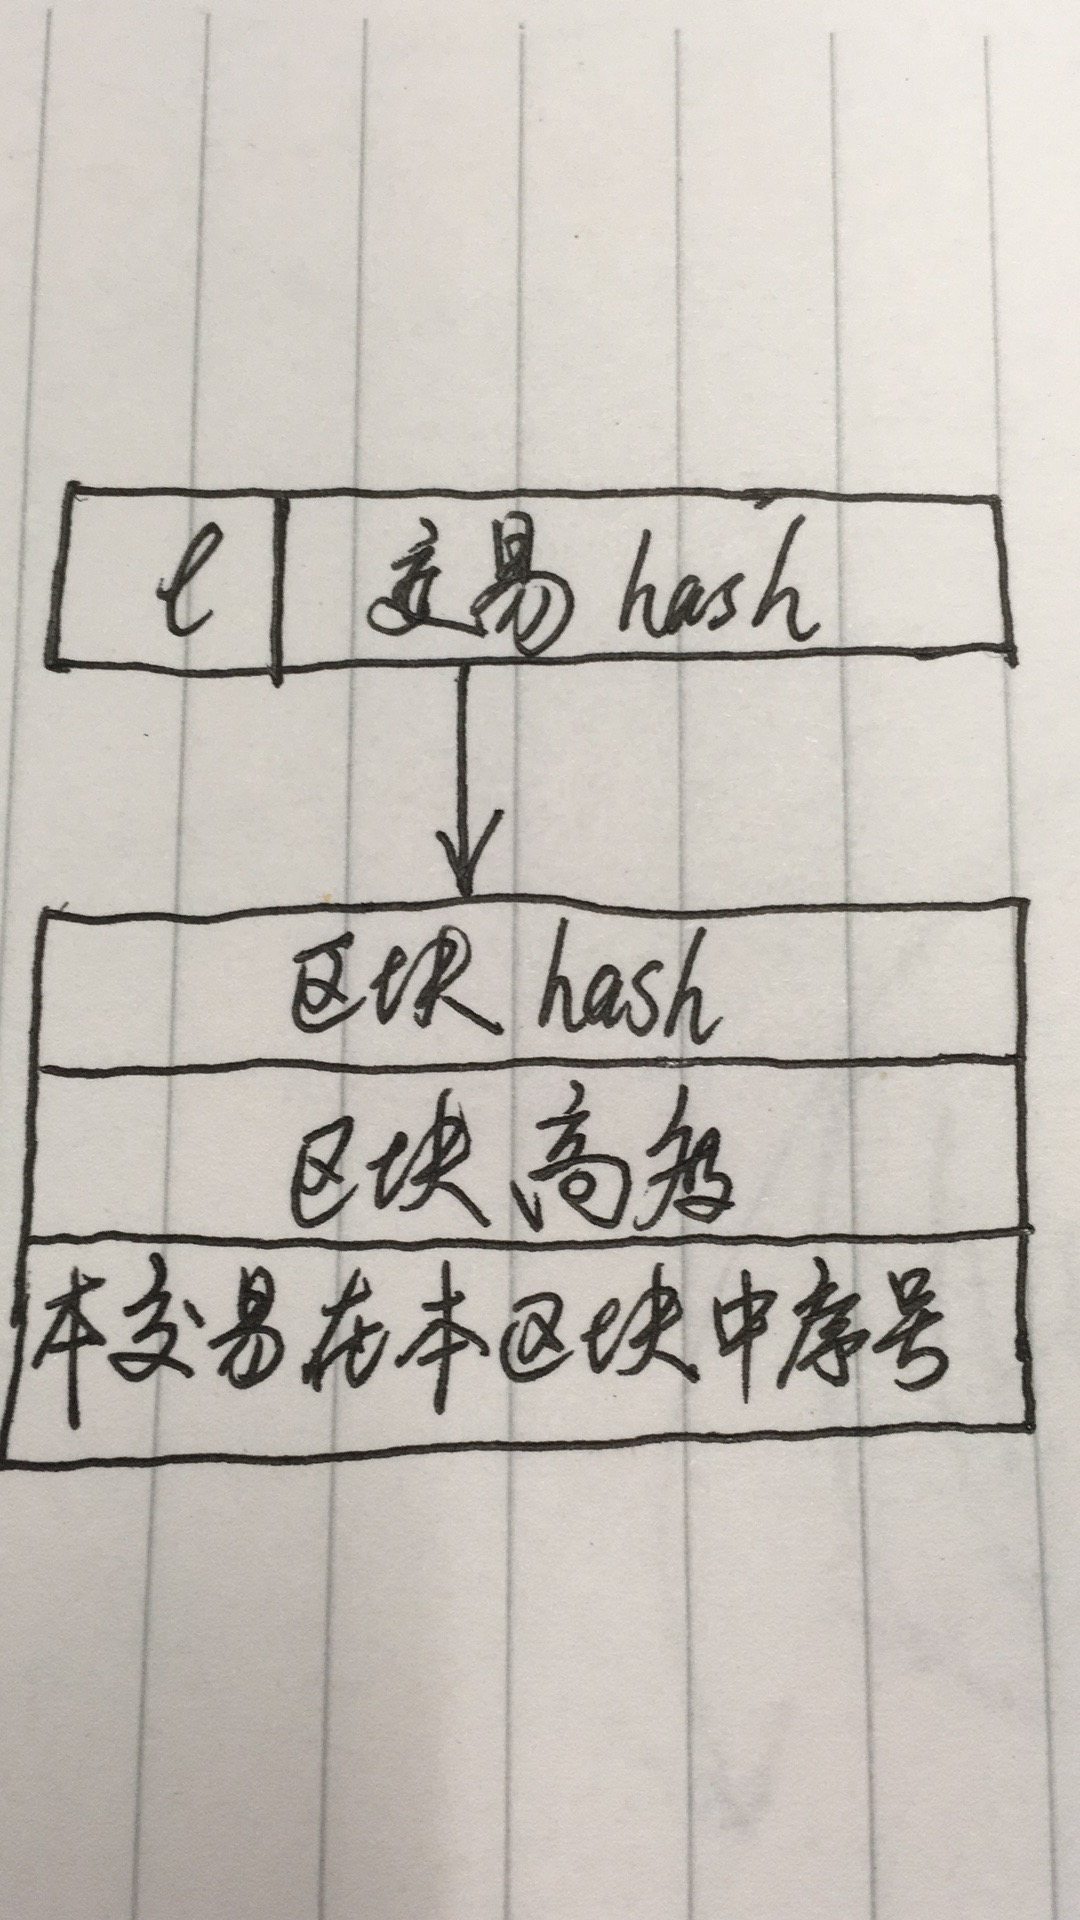 l 交易 hash
区块 hash
区块高度
本交易在本区块中序号